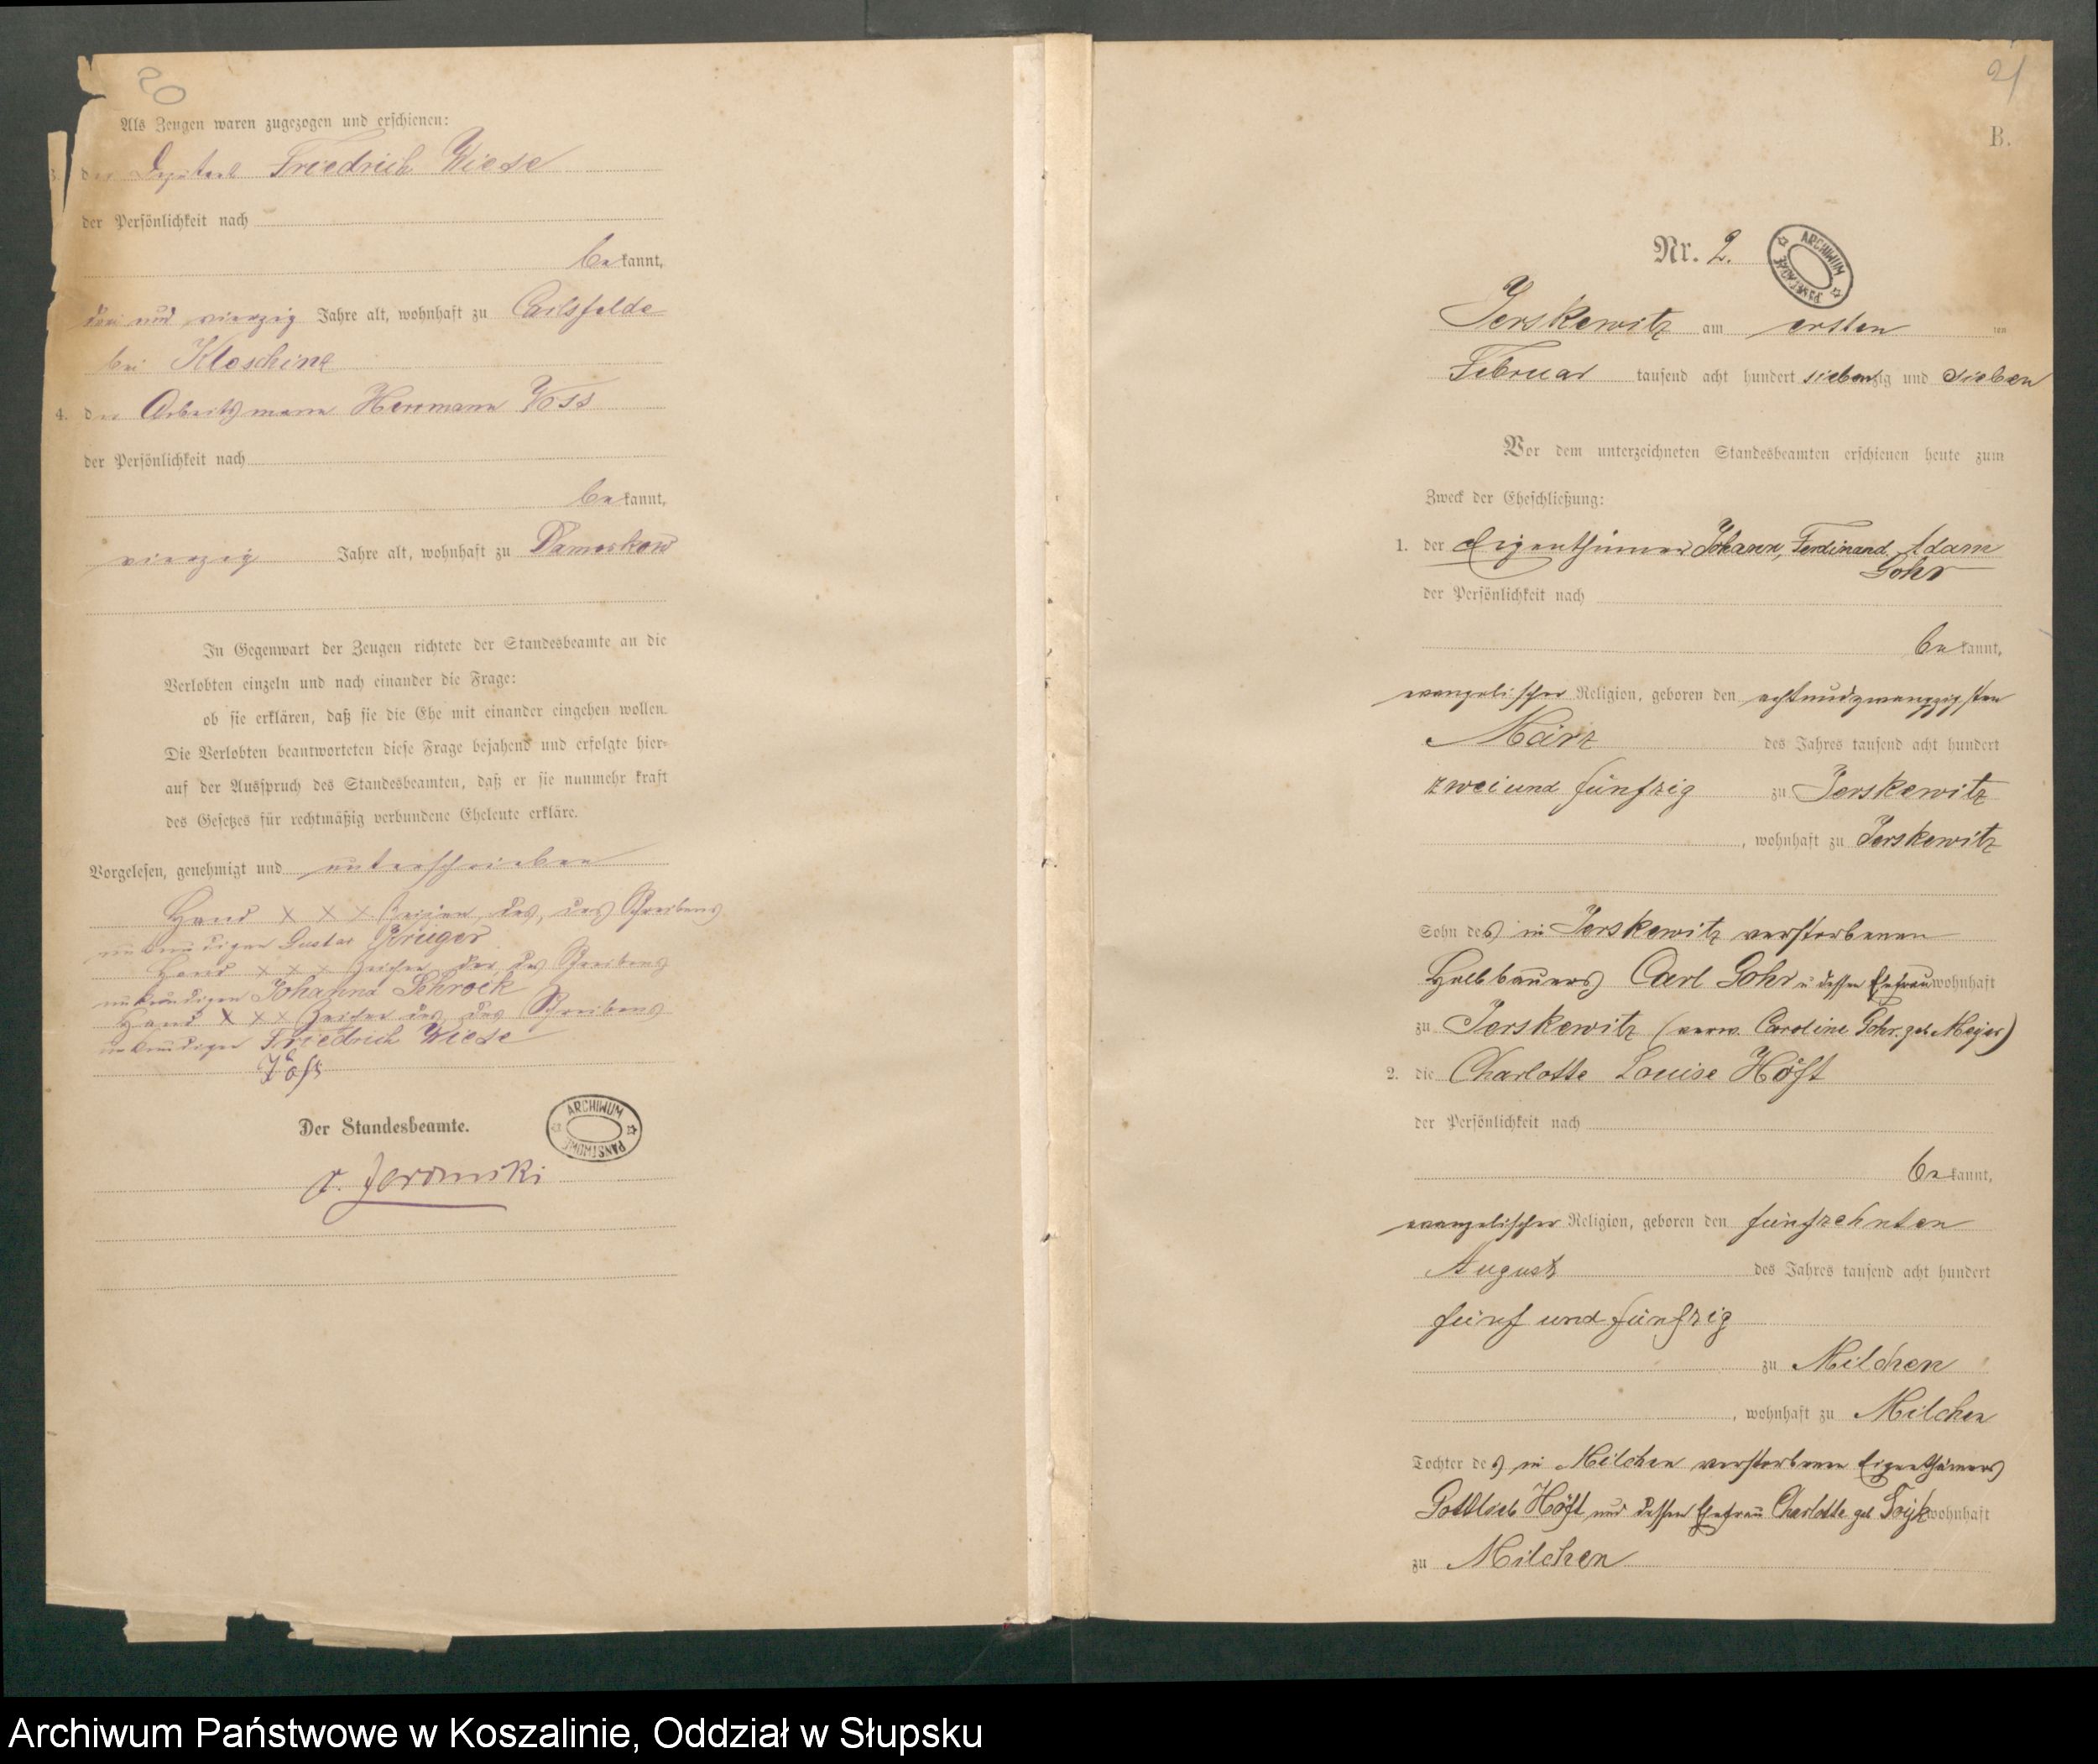 20
Als Zeugen waren zugezogen und erschienen:
3. der Deputant Friedrich Wiese
der Persönlichkeit nach
bekannt,
drei und vierzig Jahre alt, wohnhaft zu Carlsfelde
bei Kloschine
4. der Arbeitsmann Herrmann Voss
der Persönlichkeit nach
bekannt,
vierzig Jahre alt, wohnhaft zu Damerkow
In Gegenwart der Zeugen richtete der Standesbeamte an die
Verlobten einzeln und nach einander die Frage:
ob sie erklären, daß sie die Ehe mit einander eingehen wollen.
Die Verlobten beantworteten diese Frage bejahend und erfolgte hier-
auf der Ausspruch des Standesbeamten, daß er sie nunmehr kraft
des Gesetzes für rechtmäßig verbundene Eheleute erkläre.
Vorgelesen, genehmigt und unterschrieben
Hand X X X Zeichen des, des Schreibens
unkundigen Gustav Krüger
Hand X X X Zeichen der, des Schreibens
unkundigen Johanna Schrock
Hand X X X Zeichen des, des Schreibens
unkundigen Friedrich Wiese
Der Standesbeamte.
ARCHIWUM PAŃSTWOWE
21
B.
Nr. 2.
ARCHIWUM PAŃSTWOWE
Jerskewitz am ersten ten
Februar tausend acht hundert siebenzig und sieben
Vor dem unterzeichneten Standesbeamten erschienen heute zum
Zweck der Eheschließung:
1. der Eigenthümer Johann, Ferdinand, Adam
Gohr
der Persönlichkeit nach
bekannt,
evangelischer Religion, geboren den achtundzwanzigsten
März des Jahres tausend acht hundert
zwei und fünfzig zu Jerskewitz
, wohnhaft zu Jerskewitz
Sohn des in Jerskewitz verstorbenen
Halbbauers Carl Gohr u dessen Ehefrau wohnhaft
zu Jerskewitz (verw. Caroline Gohr. geb Meyer)
2. die Charlotte Louise Höft
der Persönlichkeit nach
bekannt,
evangelischer Religion, geboren den fünfzehnten
August des Jahres tausend acht hundert
fünf und fünfzig
zu Milchen
, wohnhaft zu Milchen
Tochter des in Milchen verstorbenen Eigenthümers
Gottlieb Höft und dessen Ehefrau Charlotte geb wohnhaft
zu Milchen
Archiwum Państwowe w Koszalinie, Oddział w Słupsku